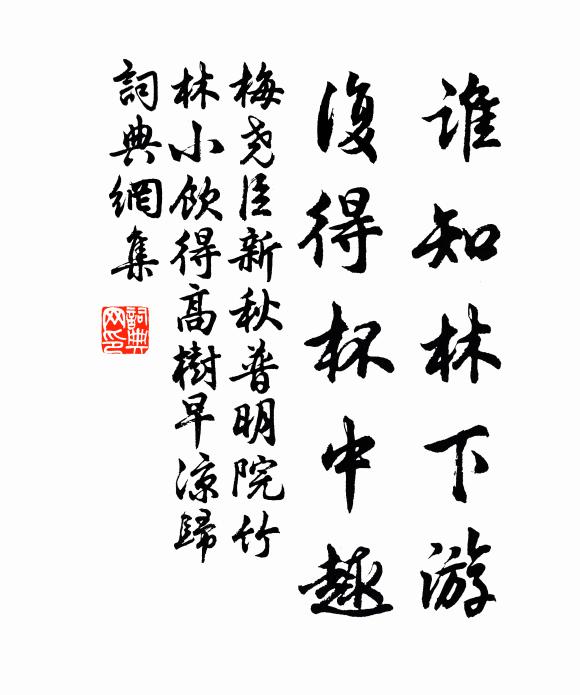 谁知林下游
復得杯中趣
梅尧臣新秋普明院竹
林小飲得高樹早涼歸
詞典網集
詞典
网印